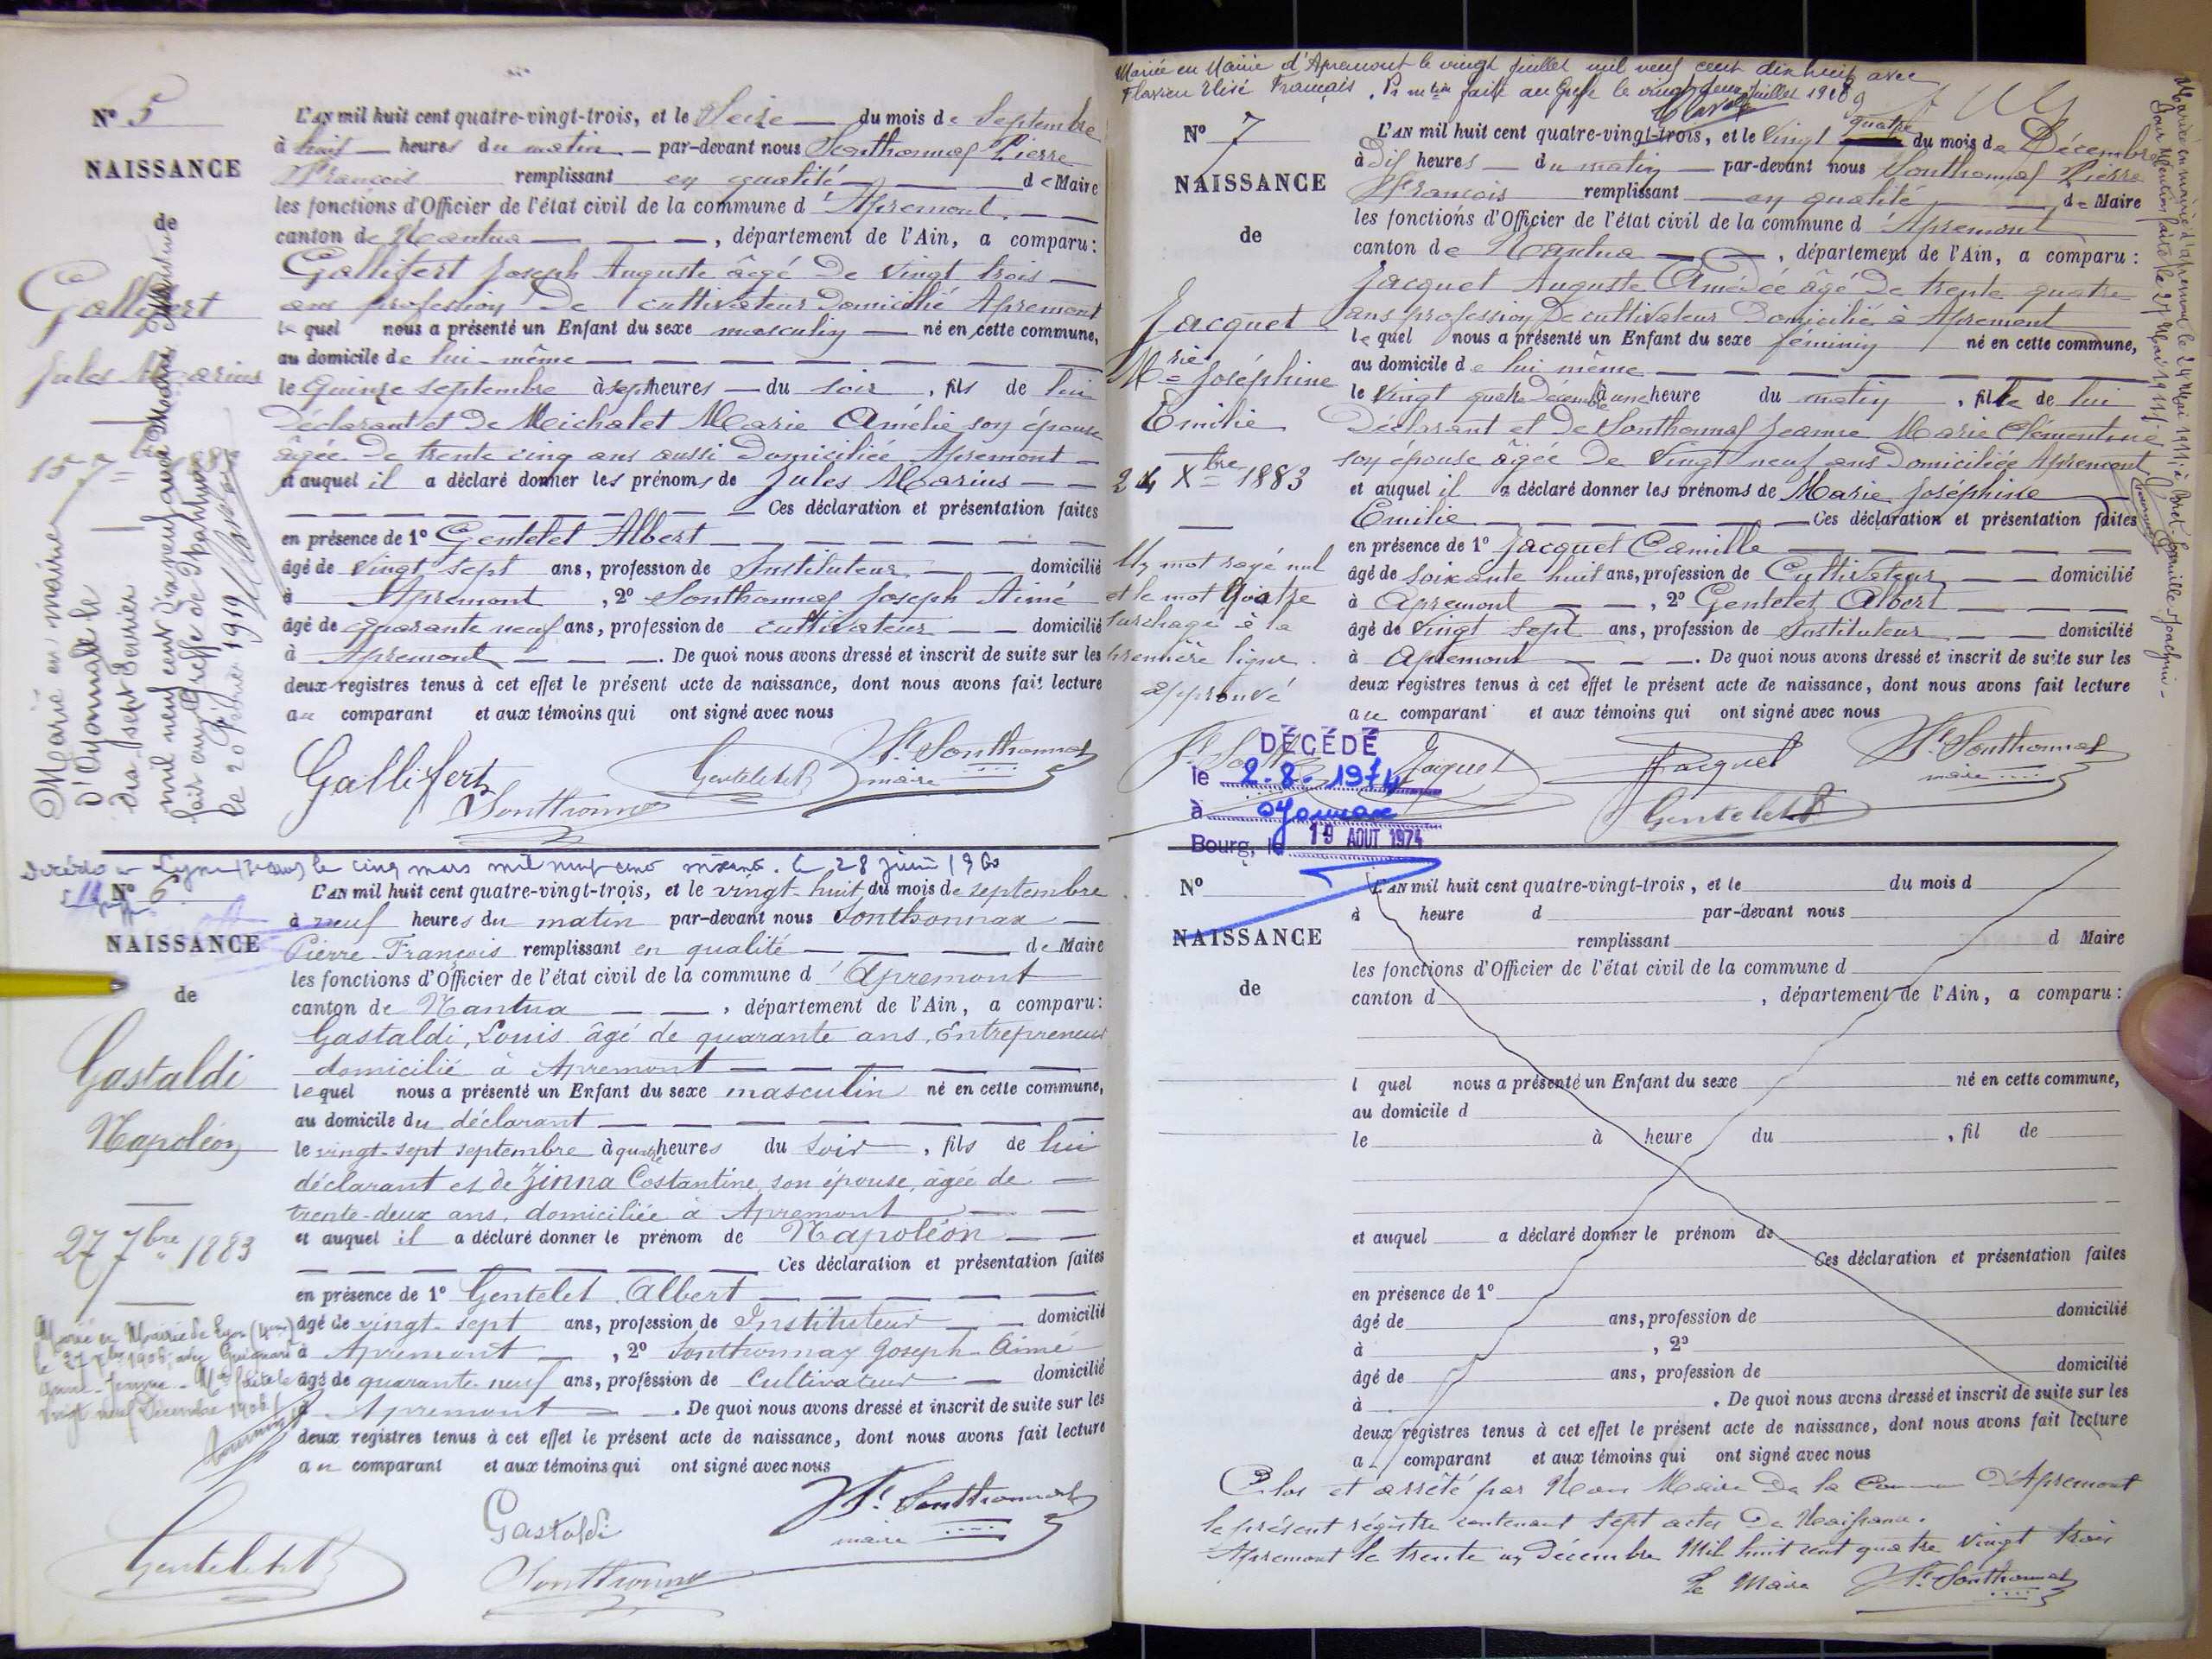 N° 5
NAISSANCE
de
Gallifert
Jules Marius
15 7bre 1883
Marié en mairie
d'Oyonnax le
dix sept Février
mil neuf cent dix neuf avec
fait au Greffe de Nantua
le 20 Février 1919
L'AN mil huit cent quatre-vingt-trois, et le Seize du mois de Septembre
à huit heures du matin par-devant nous Sonthonnax Pierre
François remplissant en qualité de Maire
les fonctions d'Officier de l'état civil de la commune d'Apremont
canton de Nantua, département de l'Ain, a comparu:
Gallifert Joseph Auguste âgé de vingt trois
ans profession de cultivateur domicilié Apremont
lequel nous a présenté un Enfant du sexe masculin né en cette commune,
au domicile de lui-même
le quinze septembre à sept heures du soir, fils de lui
déclarant et de Michalet Marie Amélie son épouse
âgée de trente cinq ans aussi domiciliée Apremont
et auquel il a déclaré donner les prénoms de Jules Marius
Ces déclaration et présentation faites
en présence de 1° Gentelet Albert
âgé de vingt sept ans, profession de Instituteur domicilié
à Apremont, 2° Sonthonnax Joseph Aimé
âgé de quarante neuf ans, profession de cultivateur domicilié
à Apremont. De quoi nous avons dressé et inscrit de suite sur les
deux registres tenus à cet effet le présent acte de naissance, dont nous avons fait lecture
au comparant et aux témoins qui ont signé avec nous
Gallifert Gentelet Sonthonnax
Sonthonnax maire
Décédé à Lyon le cinq mars mil neuf cent soixante. Le 28 juin 1960
N° 6
NAISSANCE
de
Gastaldi
Napoléon
27 7bre 1883
Marié en Mairie de Lyon
le 27 1906 avec
Anne-Jeanne
vingt neuf Décembre 1906
L'AN mil huit cent quatre-vingt-trois, et le vingt-huit du mois de septembre
à neuf heures du matin par-devant nous Sonthonnax
Pierre François remplissant en qualité de Maire
les fonctions d'Officier de l'état civil de la commune d'Apremont
canton de Nantua, département de l'Ain, a comparu:
Gastaldi, Louis âgé de quarante ans, Entrepreneur
domicilié à Apremont
lequel nous a présenté un Enfant du sexe masculin né en cette commune,
au domicile du déclarant
le vingt-sept septembre à quatre heures du soir, fils de lui
déclarant et de Zinna Costantine, son épouse, âgée de
trente-deux ans, domiciliée à Apremont
et auquel il a déclaré donner le prénom de Napoléon
Ces déclaration et présentation faites
en présence de 1° Gentelet Albert
âgé de vingt-sept ans, profession de Instituteur domicilié
à Apremont, 2° Sonthonnax Joseph-Aimé
âgé de quarante-neuf ans, profession de Cultivateur domicilié
à Apremont. De quoi nous avons dressé et inscrit de suite sur les
deux registres tenus à cet effet le présent acte de naissance, dont nous avons fait lecture
au comparant et aux témoins qui ont signé avec nous
Gentelet Gastaldi Sonthonnax
Sonthonnax maire
Mariée en Mairie d'Apremont le vingt juillet mil neuf cent dix huit avec
Flavien Elisé Français. faite au Greffe le vingt deux juillet 1918
N° 7
NAISSANCE
de
Jacquet
Mrie Joséphine
Emilie
24 Xbre 1883
Un mot rayé nul
et le mot Quatre
surchagé à la
première ligne
approuvé
Jacquet
DÉCÉDÉ
le 2.8.1974
à Oyonnax
Bourg, le 19 AOUT 1974
L'AN mil huit cent quatre-vingt-trois, et le vingt quatre du mois de Décembre
à Dix heures du matin par-devant nous Sonthonnax Pierre
François remplissant en qualité de Maire
les fonctions d'Officier de l'état civil de la commune d'Apremont
canton de Nantua, département de l'Ain, a comparu:
Jacquet Auguste Amédée âgé de trente quatre
ans profession de cultivateur domicilié à Apremont
lequel nous a présenté un Enfant du sexe féminin né en cette commune,
au domicile de lui même
le vingt quatre Décembre à une heure du matin, fille de lui
déclarant et de Sonthonnax Jeanne Marie Clémentine
son épouse âgée de vingt neuf ans domiciliée Apremont
et auquel il a déclaré donner les prénoms de Marie Joséphine
Emilie Ces déclaration et présentation faites
en présence de 1° Jacquet Camille
âgé de soixante huit ans, profession de Cultivateur domicilié
à Apremont, 2° Gentelet Albert
âgé de vingt sept ans, profession de Instituteur domicilié
à Apremont. De quoi nous avons dressé et inscrit de suite sur les
deux registres tenus à cet effet le présent acte de naissance, dont nous avons fait lecture
au comparant et aux témoins qui ont signé avec nous
Jacquet Sonthonnax
Gentelet maire
Mariée en mairie d'Apremont le 24 Mai 1911
Mention faite le 27 Mai 1911
N°
NAISSANCE
de
L'AN mil huit cent quatre-vingt-trois, et le du mois d
à heure d par-devant nous
remplissant d Maire
les fonctions d'Officier de l'état civil de la commune d
canton d , département de l'Ain, a comparu:
l quel nous a présenté un Enfant du sexe né en cette commune,
au domicile d
le à heure du , fil de
et auquel a déclaré donner le prénom de
Ces déclaration et présentation faites
en présence de 1°
âgé de ans, profession de domicilié
à , 2°
âgé de ans, profession de domicilié
à . De quoi nous avons dressé et inscrit de suite sur les
deux registres tenus à cet effet le présent acte de naissance, dont nous avons fait lecture
a comparant et aux témoins qui ont signé avec nous
Clos et arrêté par Nous Maire de la Commune d'Apremont
le présent régistre contenant sept actes de Naissance.
Apremont le trente un Décembre Mil huit cent quatre vingt trois
Le Maire Sonthonnax